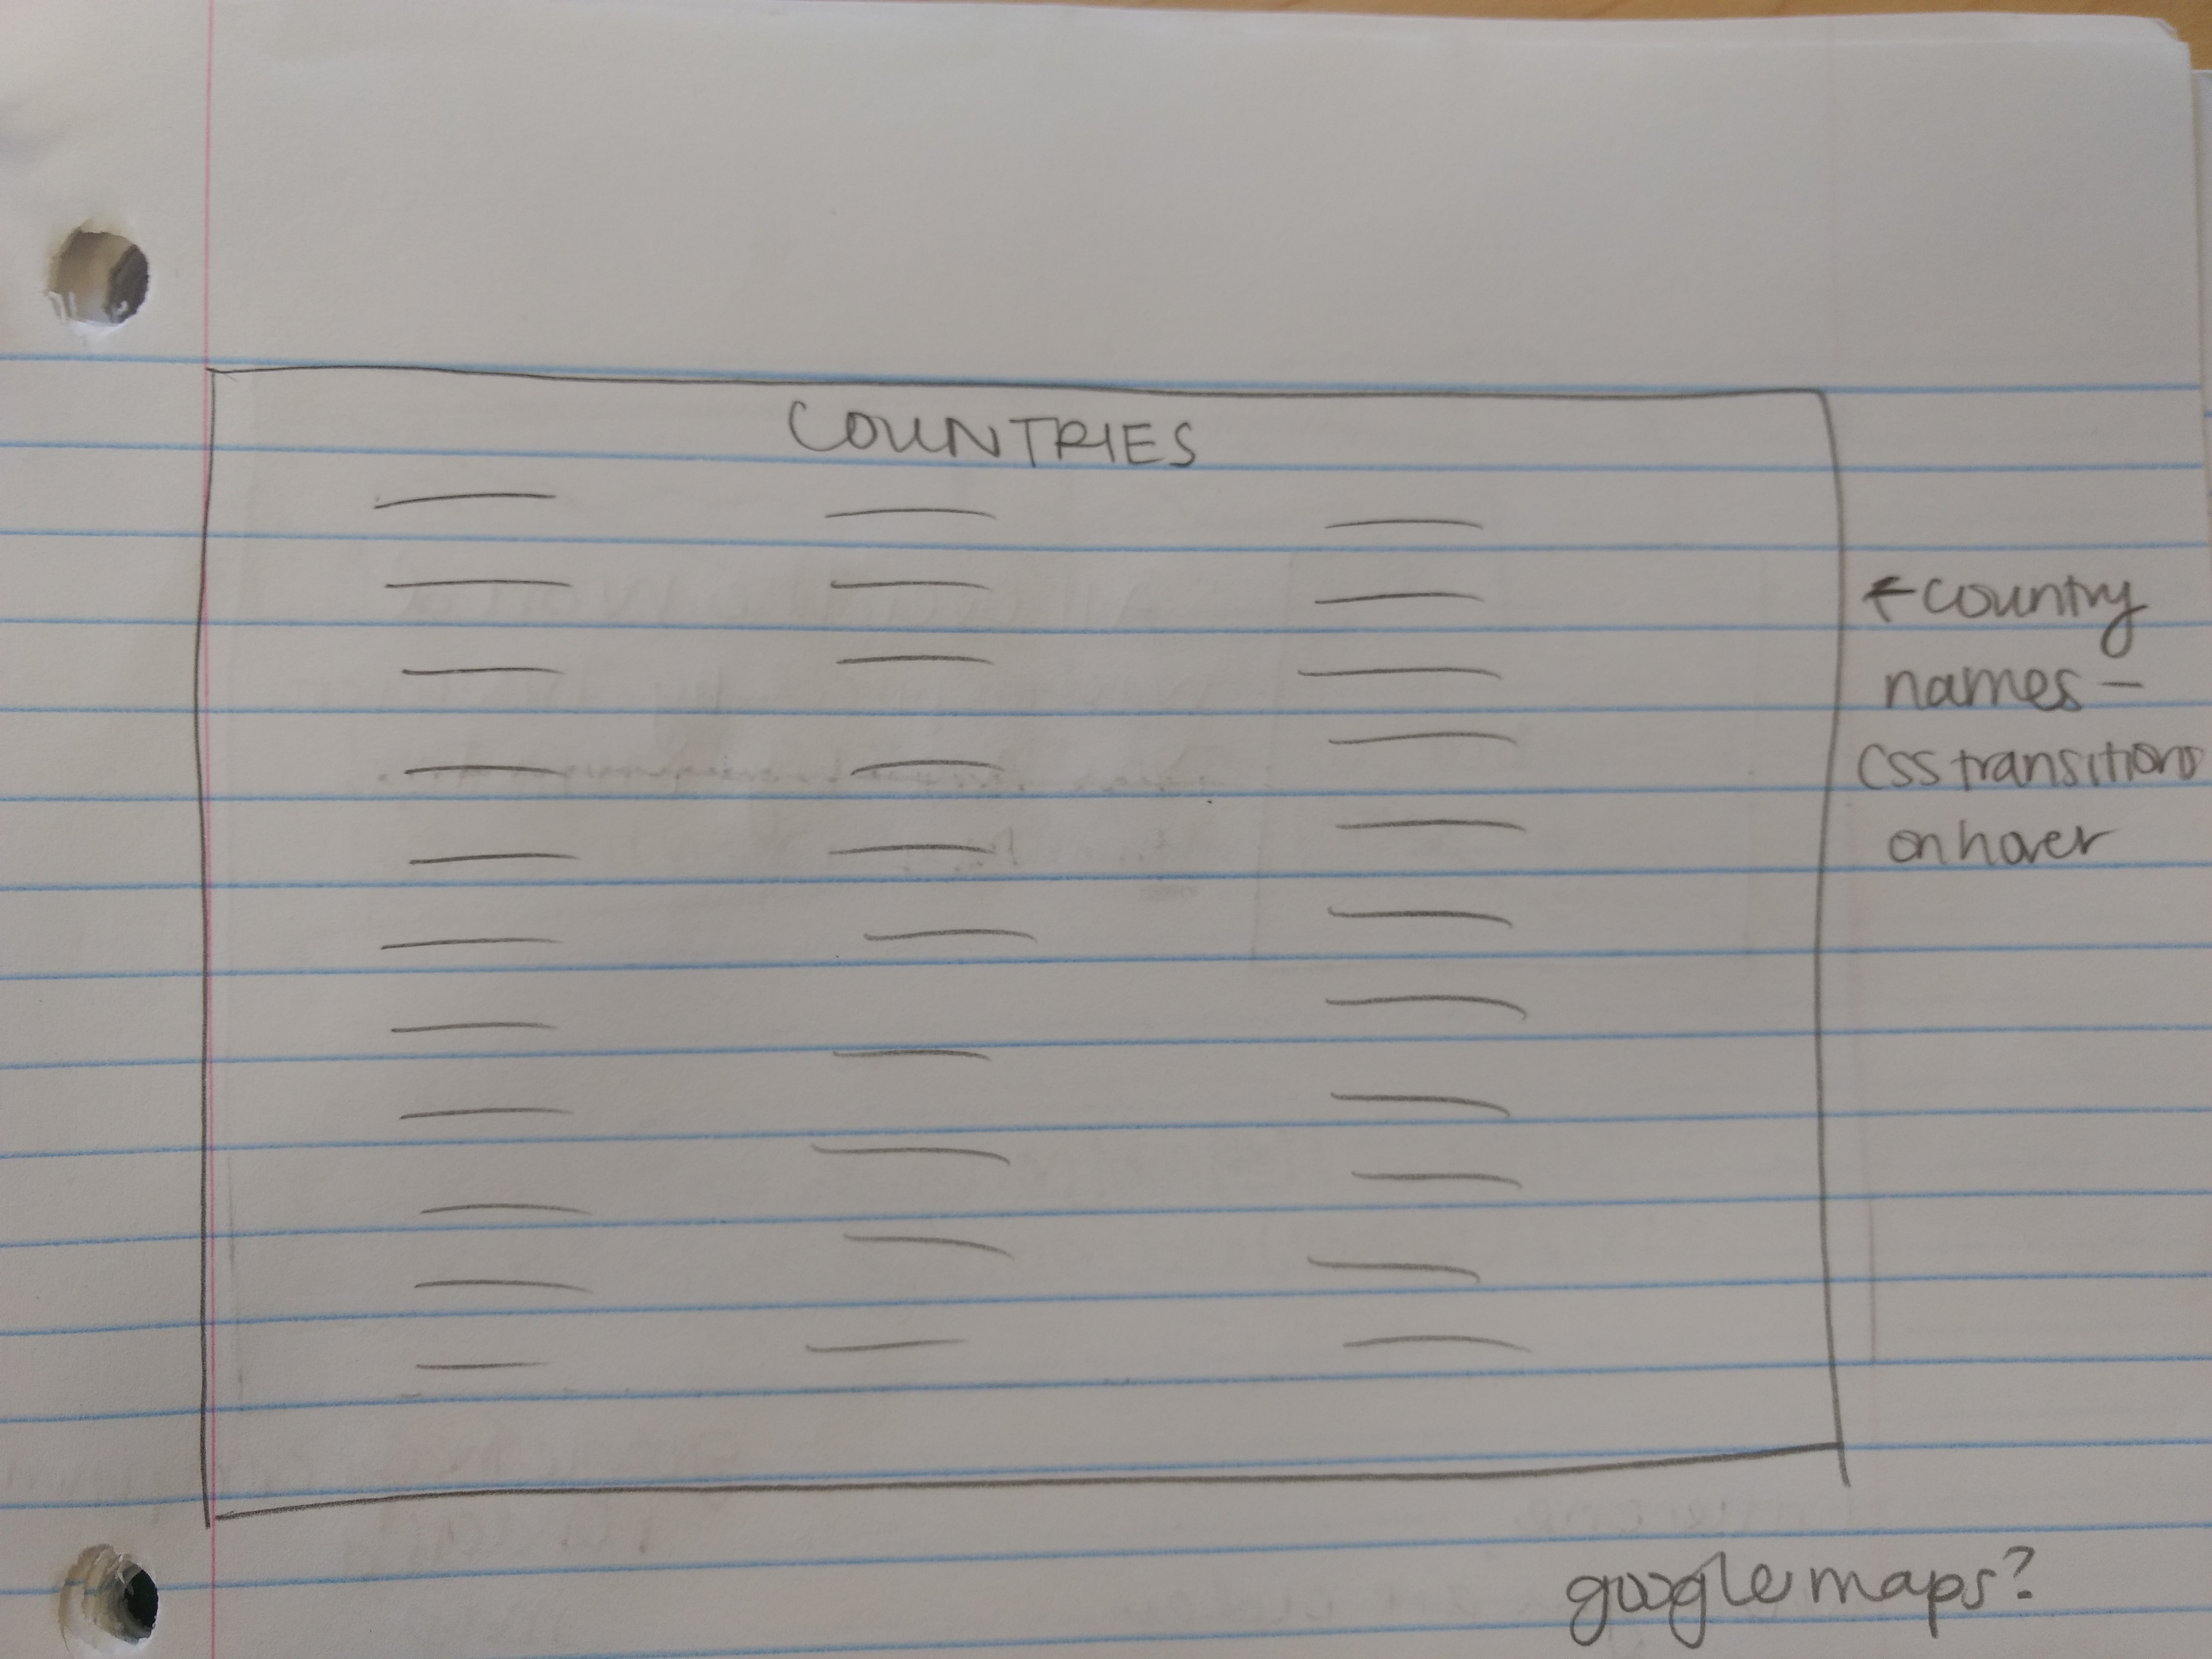 COUNTRIES
←country
names –
css transitions
on hover
google maps?